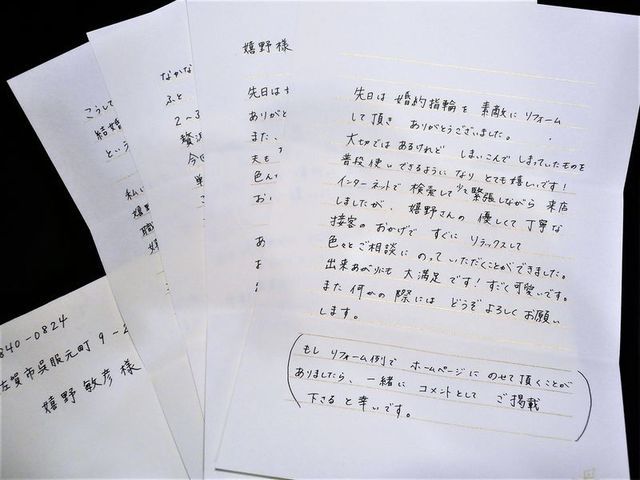 嬉野様
先日は婚約指輪を素敵にリフォーム
して頂き ありがとうございました。
大切ではあるけれど しまいこんでしまっていたものを
普段使いできるようになり とても嬉しいです！
インターネットで検索して少々緊張しながら来店
しましたが、嬉野さんの優しくて丁寧な
接客のおかげで すぐに リラックスして
色々とご相談にのっていただくことができました。
出来あがりにも 大満足です！すごく可愛いです。
また何かの際には どうぞよろしくお願い
します。
もし リフォーム例で ホームページに のせて頂くことが
ありましたら、一緒に コメントとして ご掲載
下さると幸いです。
先日は
ありがと
また、
天も
色ん
お
あ
なかな
ふと
2～3
贅沢
今回
単
こうして
結婚
という
私い
嬉野
職
840-0824
佐賀市呉服元町 9-2
嬉野 敏彦 様